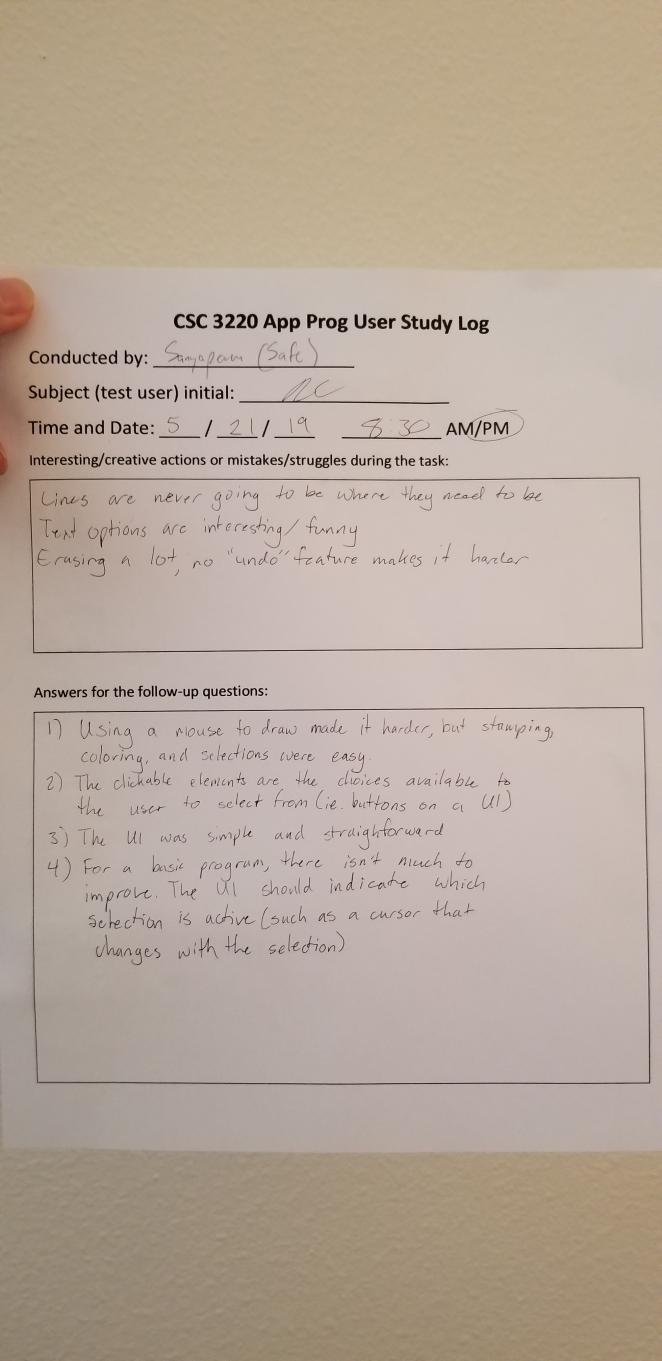 CSC 3220 App Prog User Study Log
Conducted by: (Safe)
Subject (test user) initial:
Time and Date: 5 / 21 / 19 8:30 AM/PM
Interesting/creative actions or mistakes/struggles during the task:
Lines are never going to be where they need to be
Text options are interesting/funny
Erasing a lot, no "undo" feature makes it harder
Answers for the follow-up questions:
1) Using a mouse to draw made it harder, but stamping,
coloring, and selections were easy.
2) The clickable elements are the choices available to
the user to select from (ie. buttons on a UI)
3) The UI was simple and straighforward
4) For a basic program, there isn't much to
improve. The UI should indicate which
selection is active (such as a cursor that
changes with the selection)